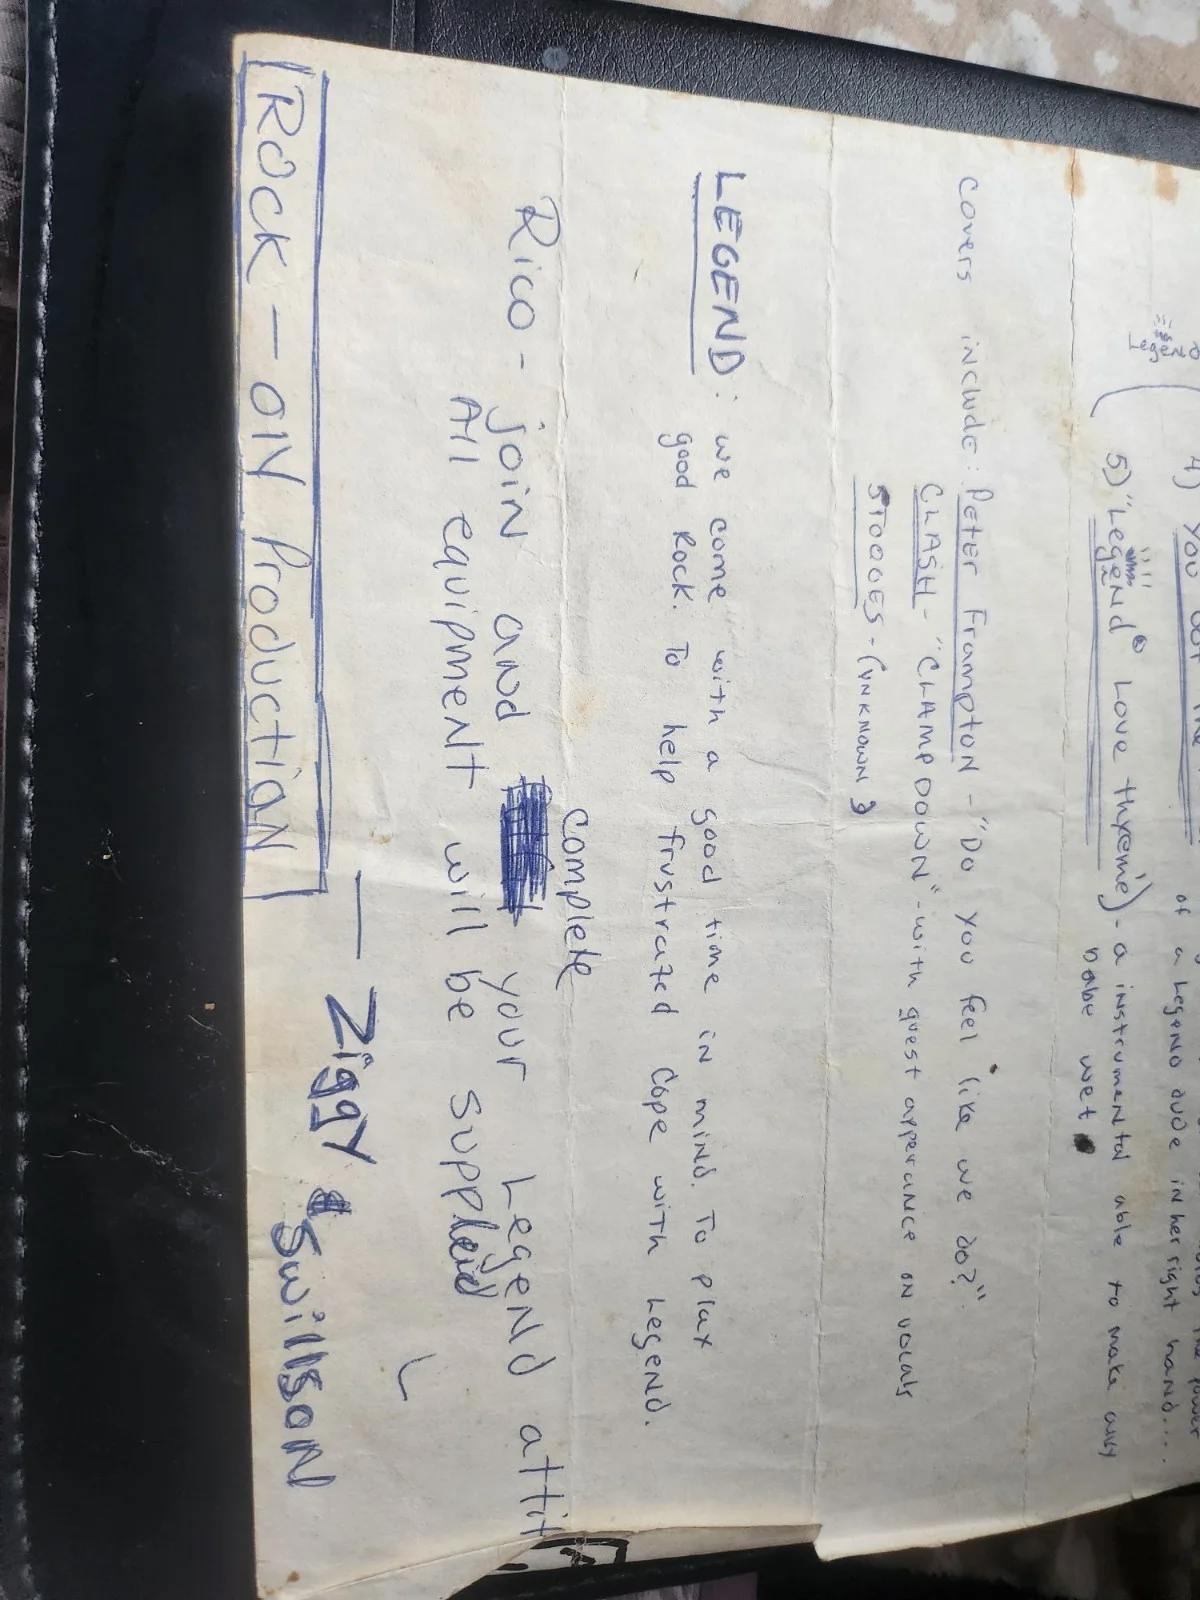 4) You
of a Legend dude in her right hand....
Legend
5) "Legend Love thxeme) - a instrumental able to make any
babe wet
Covers include: Peter Frampton - "Do you feel like we do?"
CLASH - "CLAMPDOWN" - with guest apperance on vocals
STOOGES - (unknown)
LEGEND: we come with a good time in mind. To play
good Rock. To help frustrated cope with Legend.
complete
Rico - join and your Legend attit
All equipment will be supplied
— Ziggy Swillson
ROCK - ON Production